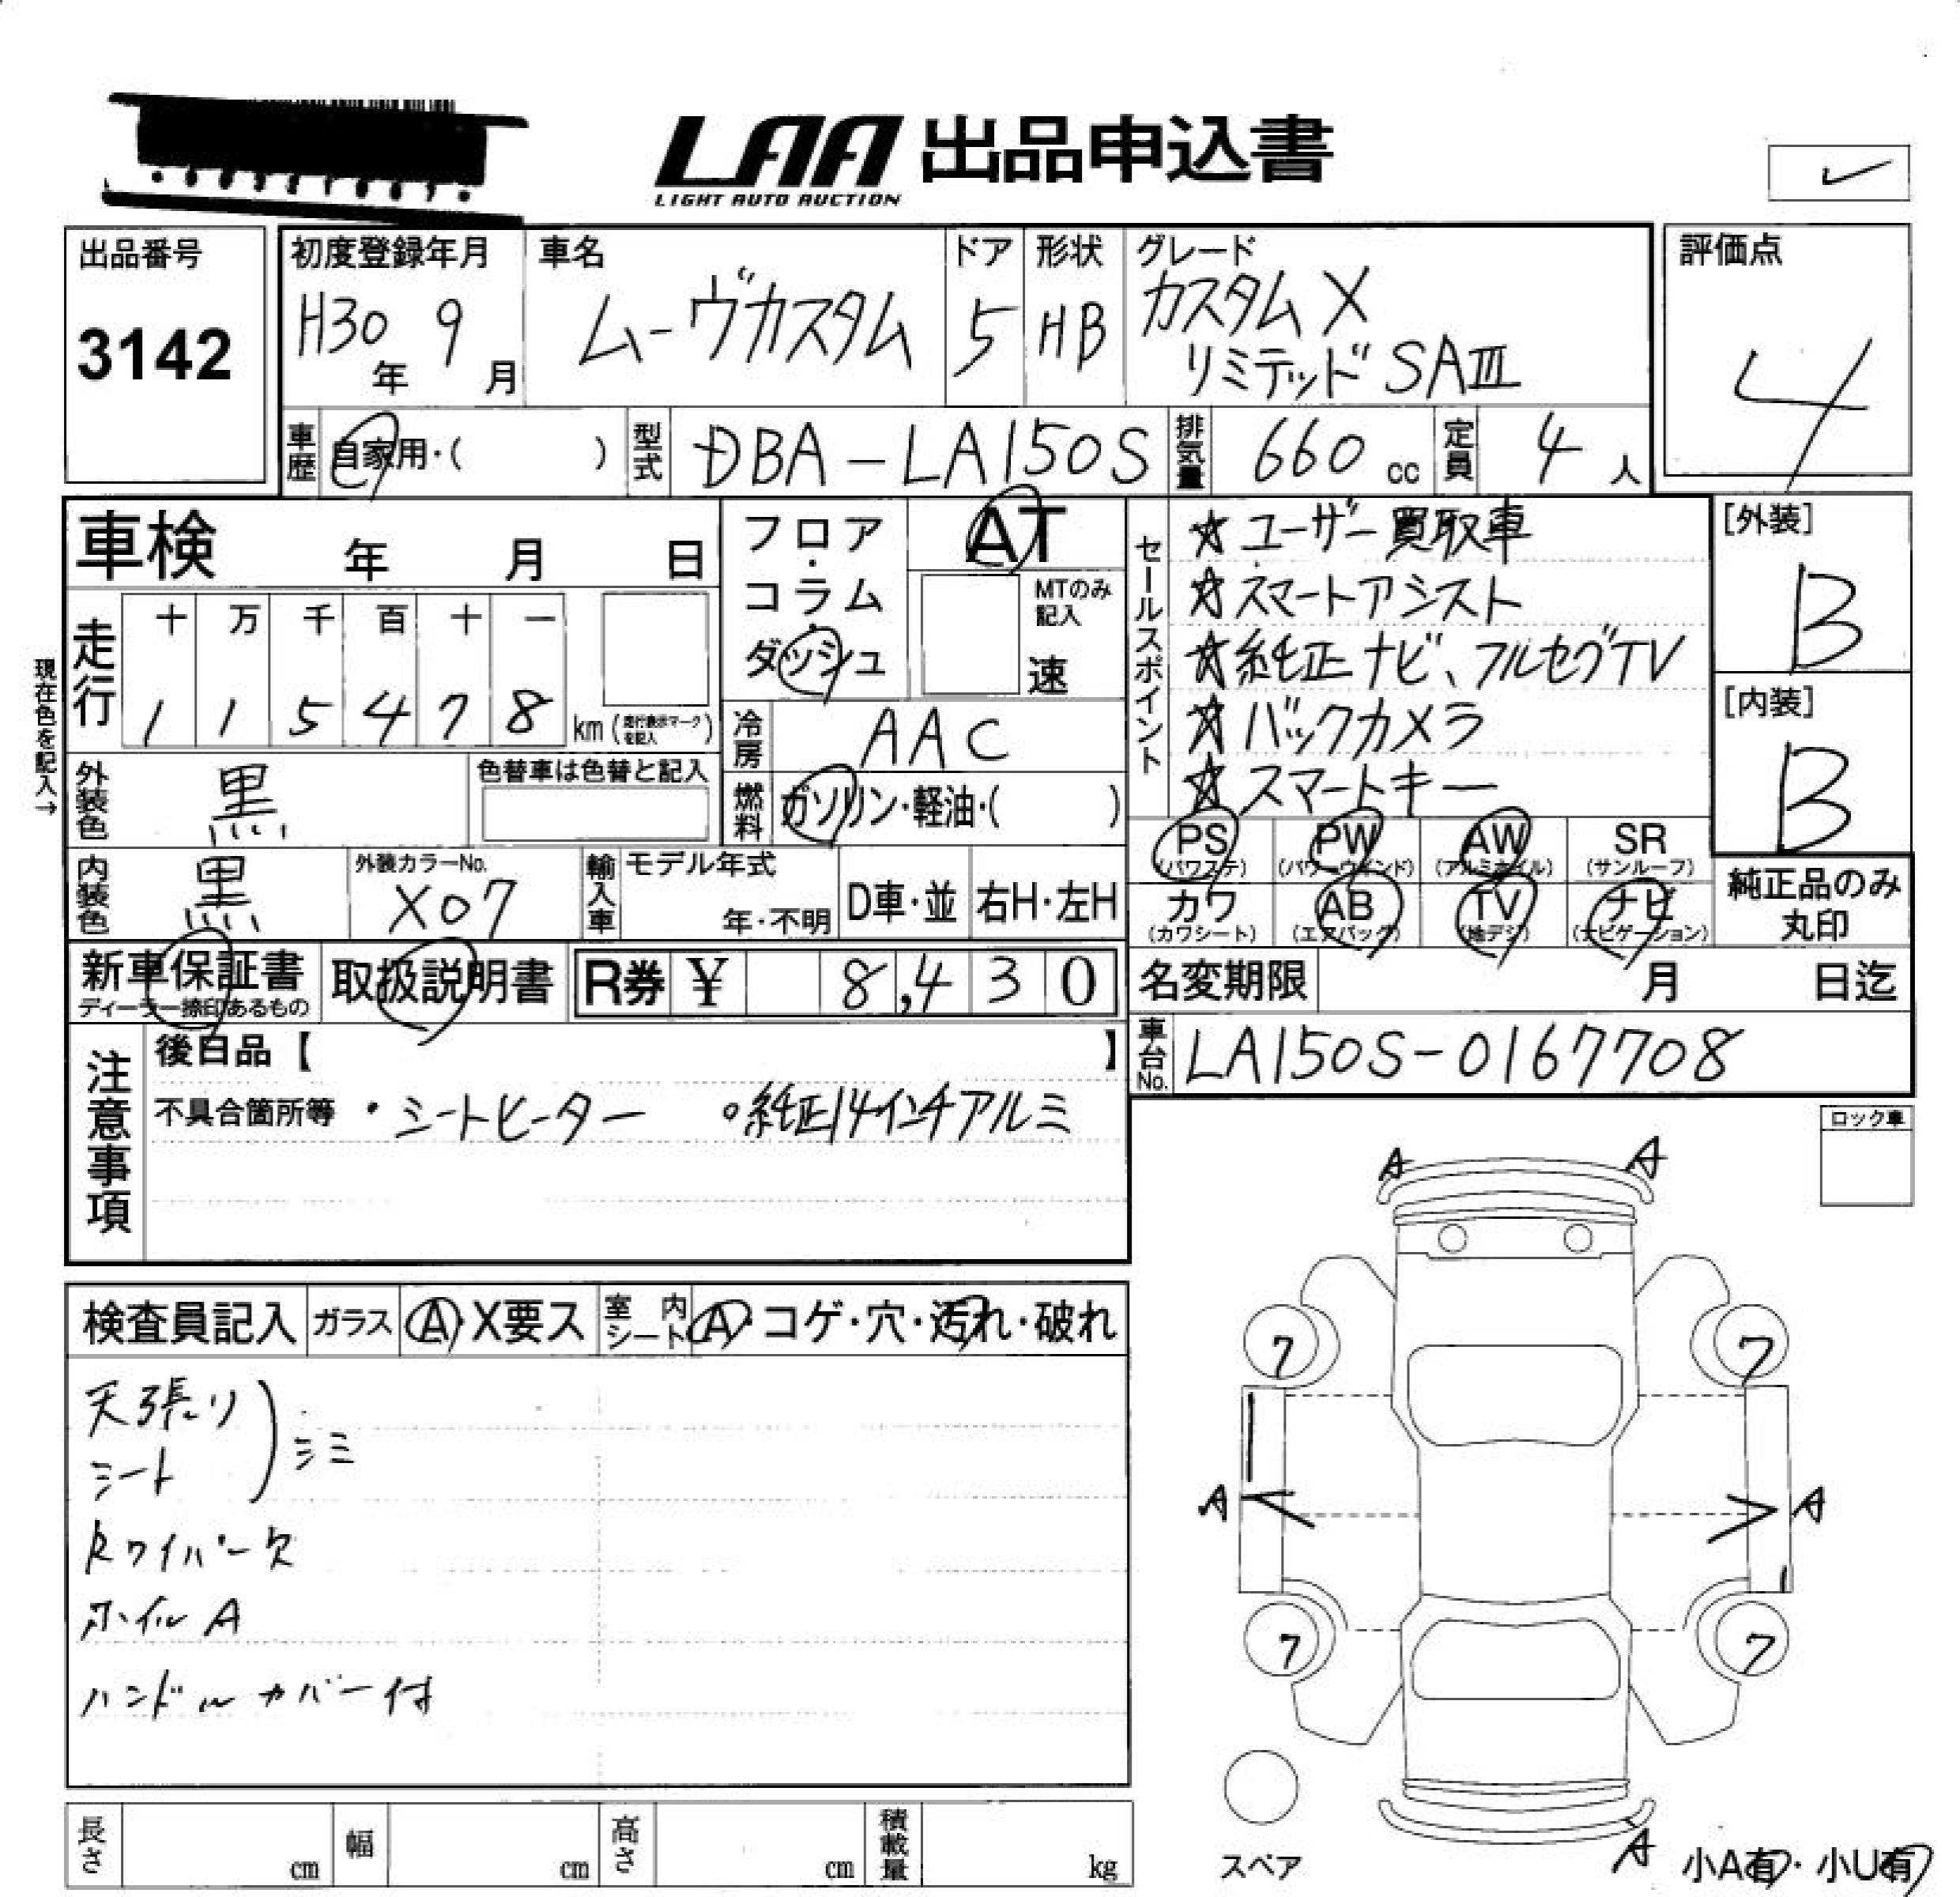 LAA 出品申込書
LIGHT AUTO AUCTION
出品番号
3142
初度登録年月
H30年 9月
車名
ムーヴカスタム
ドア
5
形状
HB
グレード
カスタムX
リミテッド SAⅢ
評価点
4
車歴 自家用・( )
型式 DBA-LA150S
排気量 660 cc
定員 4 人
車検 年 月 日
フロア・コラム・ダッシュ
AT
MTのみ記入
速
現在色を記入→
走行
十 万 千 百 十 一
1 1 5 4 7 8 km (走行表示マークを記入)
冷房 AAC
燃料 ガソリン・軽油・( )
外装色 黒
色替車は色替と記入
内装色 黒
外装カラーNo.
X07
輸入車 モデル年式
年・不明
D車・並 右H・左H
セールスポイント
☆ユーザー買取車
☆スマートアシスト
☆純正ナビ、フルセグTV
☆バックカメラ
☆スマートキー
[外装]
B
[内装]
B
PS (パワステ) PW (パワーウインド) AW (アルミホイル) SR (サンルーフ)
カワ (カワシート) AB (エアバッグ) TV (地デジ) ナビ (ナビゲーション)
純正品のみ丸印
新車保証書
ディーラー捺印あるもの
取扱説明書
R券 ¥ 8,430
名変期限 月 日迄
車台No. LA150S-0167708
注意事項
後日品【 】
不具合箇所等 ・シートヒーター ◦純正14インチアルミ
ロック車
検査員記入 ガラス A・X要ス 室内シート A・コゲ・穴・汚れ・破れ
天張り
シート ) シミ
Rワイパー欠
ホイルA
ハンドルカバー付
A A
7 7
A A
7 7
スペア
A
小A有・小U有
長さ cm 幅 cm 高さ cm 積載量 kg